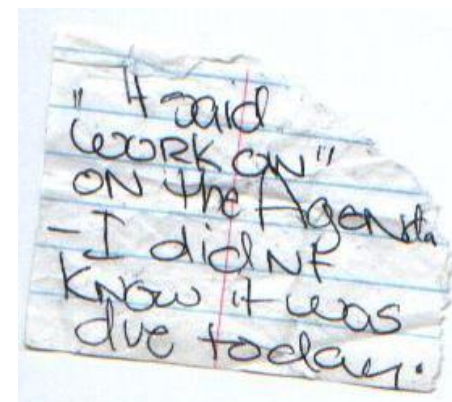 " It said
WORK ON"
ON the Agenda
- I didNt
KNOW it was
due today.